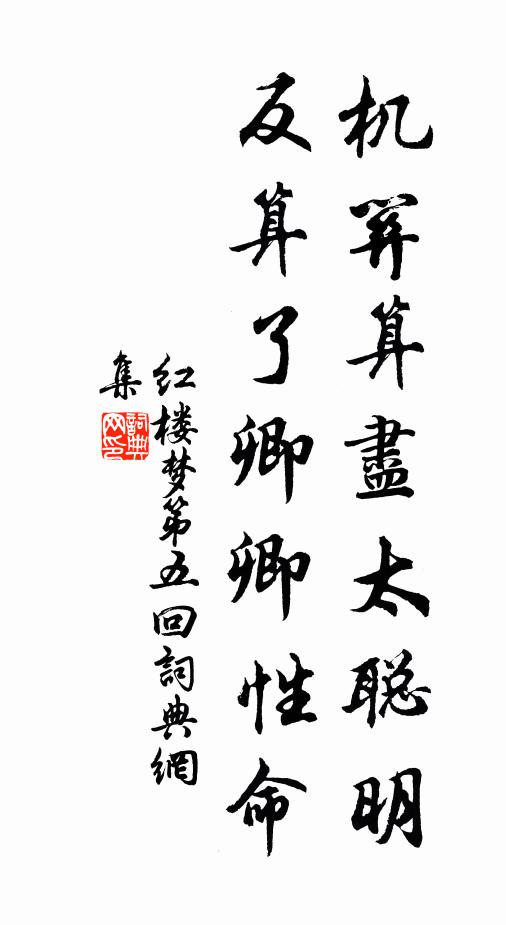 机関算盡太聪明
反算了卿卿性命
红楼梦第五回詞典網
集
詞典
网印